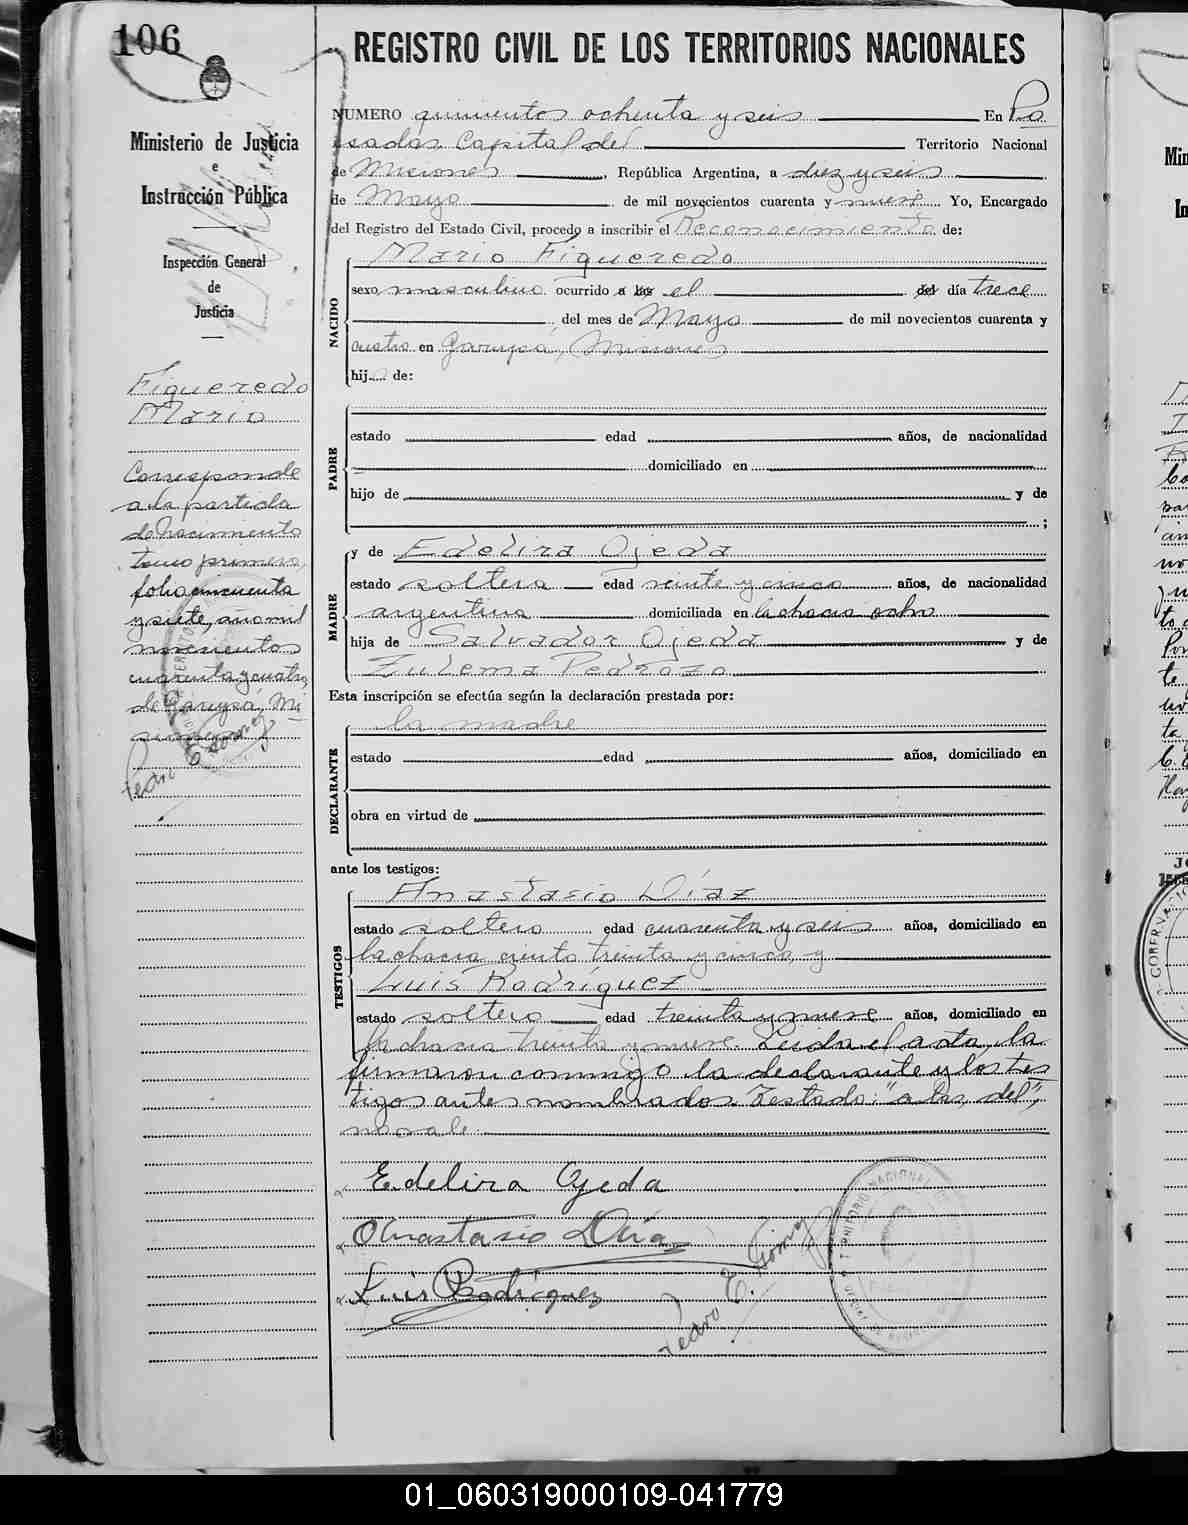 106
REGISTRO CIVIL DE LOS TERRITORIOS NACIONALES
Ministerio de Justicia
e
Instrucción Pública
Inspección General
de
Justicia
Figueredo
Mario
Corresponde
a la partida
de Nacimiento
tomo primero,
folio cincuenta
y siete, año mil
novecientos
cuarenta y cuatro,
de Garupá, Mi
siones
Pedro E. Gomez
NUMERO quinientos ochenta y seis En Po
sadas Capital del Territorio Nacional
de Misiones, República Argentina, a diez y seis
de Mayo de mil novecientos cuarenta y nueve. Yo, Encargado
del Registro del Estado Civil, procedo a inscribir el Reconocimiento de:
NACIDO
Mario Figueredo
sexo masculino ocurrido a las el del día trece
del mes de Mayo de mil novecientos cuarenta y
cuatro en Garupá, Misiones
hij de:
PADRE
estado edad años, de nacionalidad
domiciliado en
hijo de y de
;
MADRE
y de Edelira Ojeda
estado soltera edad veinte y cinco años, de nacionalidad
argentina domiciliada en la chacra ocho
hija de Salvador Ojeda y de
Zulema Pedrozo
Esta inscripción se efectúa según la declaración prestada por:
DECLARANTE
la madre
estado edad años, domiciliado en
obra en virtud de
ante los testigos:
TESTIGOS
Anastasio Díaz
estado soltero edad cuarenta y seis años, domiciliado en
la chacra ciento treinta y cinco y
Luis Rodríguez
estado soltero edad treinta y nueve años, domiciliado en
la chacra treinta y nueve. Leida el acta, la
firmaron conmigo la declarante y los tes
tigos antes nombrados. Testado: "a las, del",
no vale.
Edelira Ojeda
Anastasio Díaz
Luis Rodriguez
Pedro E. Gomez
01_060319000109-041779